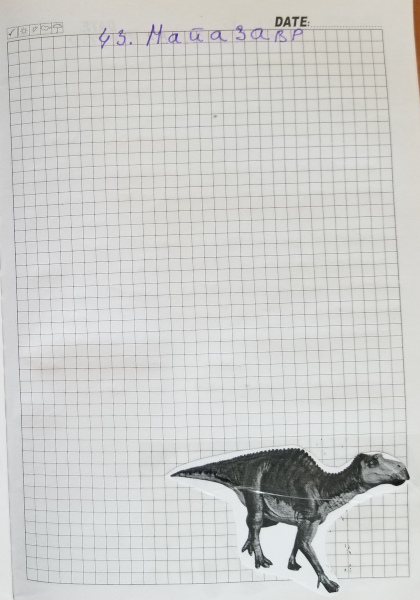 DATE:
43. Майазавр